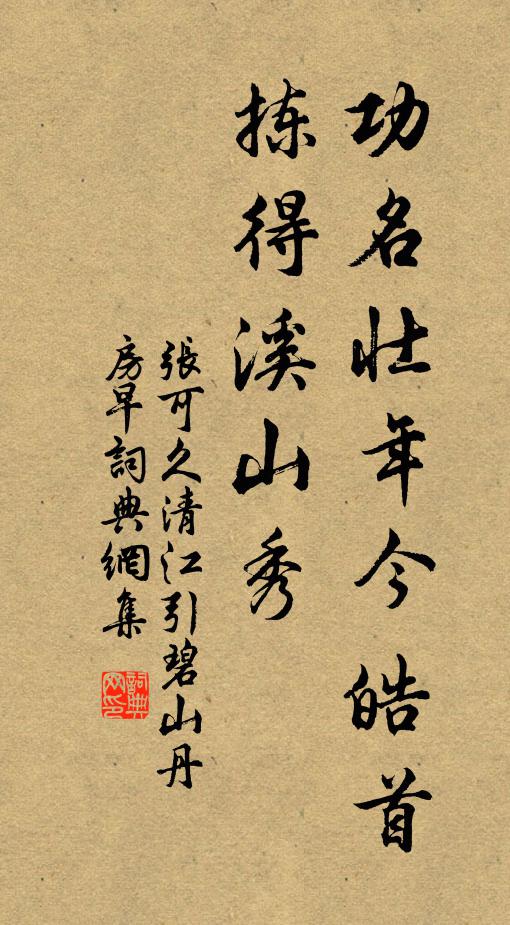 功名壯年今皓首
揀得溪山秀
張可久清江引碧山丹
房早詞典網集
詞典
网印